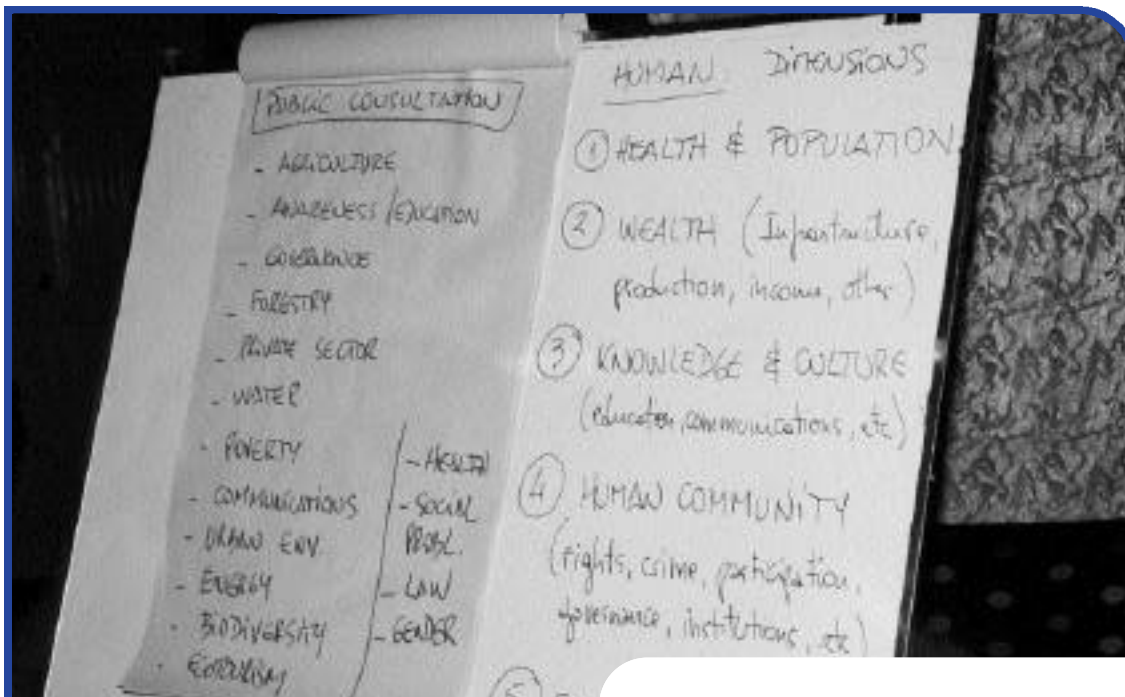 PUBLIC CONSULTATION
- AGRICULTURE
- AWARENESS / EDUCATION
- GOVERNANCE
- FORESTRY
- PRIVATE SECTOR
- WATER
- POVERTY
- COMMUNICATIONS
- URBAN ENV.
- ENERGY
- BIODIVERSITY
- ECOTOURISM
- HEALTH
- SOCIAL
PROBL.
- LAW
- GENDER
HUMAN DIMENSIONS
1 HEALTH & POPULATION
2 WEALTH (Infrastructure,
production, income, other)
3 KNOWLEDGE & CULTURE
(education, communications, etc)
4 HUMAN COMMUNITY
(rights, crime, participation,
governance, institutions, etc)
5